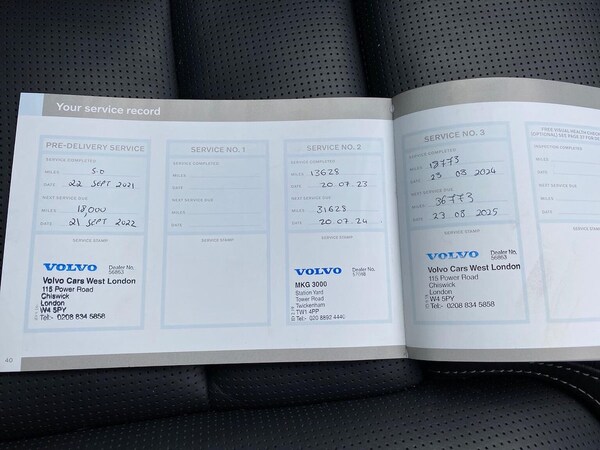 Your service record
PRE-DELIVERY SERVICE
SERVICE COMPLETED
MILES 5.0
DATE 22 SEPT 2021
NEXT SERVICE DUE
MILES 18,000
DATE 21 SEPT 2022
SERVICE STAMP
VOLVO Dealer No. 56863
Volvo Cars West London
115 Power Road
Chiswick
London
W4 5PY
Tel:- 0208 834 5858
SERVICE NO. 1
SERVICE COMPLETED
MILES
DATE
NEXT SERVICE DUE
MILES
DATE
SERVICE STAMP
SERVICE NO. 2
SERVICE COMPLETED
MILES 13628
DATE 20.07.23
NEXT SERVICE DUE
MILES 31628
DATE 20.07.24
SERVICE STAMP
VOLVO Dealer No.
MKG 3000
Station Yard
Tower Road
Twickenham
TW1 4PP
Tel:- 020 8892 4440
SERVICE NO. 3
SERVICE COMPLETED
MILES 18773
DATE 23 08 2024
NEXT SERVICE DUE
MILES 36773
DATE 23 08 2025
SERVICE STAMP
VOLVO Dealer No. 56863
Volvo Cars West London
115 Power Road
Chiswick
London
W4 5PY
Tel:- 0208 834 5858
FREE VISUAL HEALTH CHECK
(OPTIONAL) SEE PAGE 37 FOR
INSPECTION COMPLETED
MILES
DATE
NEXT SERVICE DUE
MILES
DATE
40